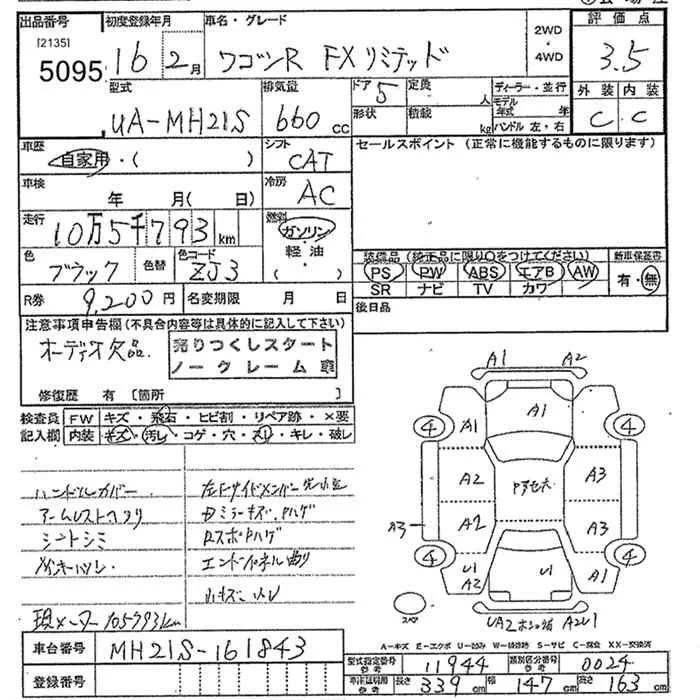 出品番号 初度登録年月 車名・グレード 2WD・4WD 評価点
[2135]
5095 16 2月 ワゴンR FXリミテッド 3.5
型式 排気量 ドア 5 定員 人 ディーラー・並行 外装 内装
UA-MH21S 660cc 形状 積載 kg モデル年式 年 ハンドル 左・右 C C
車歴 自家用・( ) シフト CAT セールスポイント (正常に機能するものに限ります)
車検 年 月( 日) 冷房 AC
走行 10万5千793km 燃料 ガソリン・軽油 ( )
装備品 (純正品に限り○をつけてください) 新車保証書
色 ブラック 色替 色コード ZJ3 PS PW ABS エアB AW 有・無
SR ナビ TV カワ
R券 9,200円 名変期限 月 日 後日品
注意事項申告欄(不具合内容等は具体的に記入して下さい)
オーディオ欠品 売りつくしスタート
ノークレーム車
修復歴 有 [箇所 ]
検査員 FW キズ・飛石・ヒビ割・リペア跡・×要
記入欄 内装 キズ・汚し・コゲ・穴・スリ・キレ・破レ
ハンドルカバー
アームレストヘタリ Bミラーキズ、ハゲ
シートシミ Rスポハゲ
エンドパネル曲り
現メーター105793km
A1 A2
A1
4 A1 4
A2 A3
A3 A2 A3
4 U1 A2 U1 A1 4
スペア
A-キズ E-エクボ U-凹み W-補修跡 S-サビ C-腐食 XX-交換済
車台番号 MH21S-161843
型式指定番号 参考 11944 類別区分番号 参考 0024
登録番号
車庫証明用 参考 長さ 339cm 幅 147cm 高さ 163cm